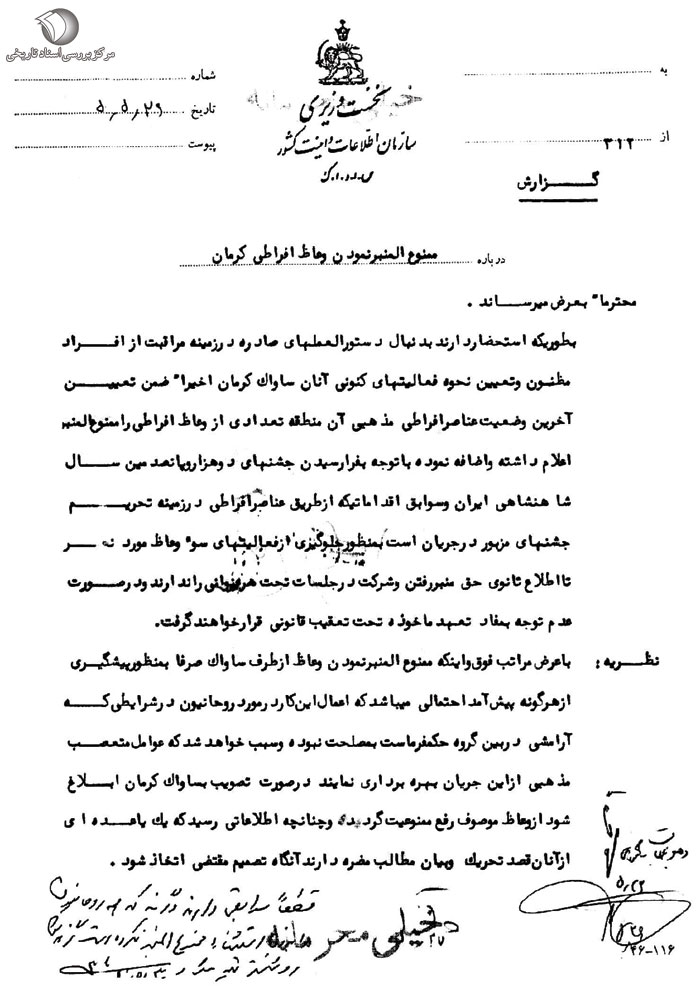 مرکز بررسی اسناد تاریخی
به
شماره
نخست وزیری
تاریخ ۵٫۵٫۲۹
سازمان اطلاعات و امنیت کشور
از ۳۱۲
پیوست
س.ا.و.ا.ک
گزارش
درباره ممنوع المنبر نمودن وعاظ افراطی کرمان
محترما" بعرض میرساند .
بطوریکه استحضار دارند بدنبال دستورالعملهای صادره در زمینه مراقبت از افراد
مظنون وتعیین نحوه فعالیتهای کنونی آنان ساواک کرمان اخیرا" ضمن تعیین
آخرین وضعیت عناصر افراطی مذهبی آن منطقه تعدادی از وعاظ افراطی را ممنوع المنبر
اعلام داشته واضافه نموده با توجه بفرارسیدن جشنهای دوهزار وپانصدمین سال
شاهنشاهی ایران وسوابق اقداماتیکه از طریق عناصر افراطی در زمینه تحریم
جشنهای مزبور در جریان است بمنظور جلوگیری از فعالیتهای سوء وعاظ مورد نظر
تا اطلاع ثانوی حق منبر رفتن وشرکت در جلسات تحت هر عنوانی را ندارند ودر صورت
عدم توجه بمفاد تعهد ماخوذه تحت تعقیب قانونی قرار خواهند گرفت.
نظریه : باعرض مراتب فوق واینکه ممنوع المنبر نمودن وعاظ از طرف ساواک صرفا بمنظور پیشگیری
از هرگونه پیش آمد احتمالی میباشد که اعمال این کار در مورد روحانیون در شرایطی که
آرامشی در بین گروه حکمفرماست بمصلحت نبوده وسبب خواهد شد که عوامل متعصب
مذهبی از این جریان بهره برداری نمایند در صورت تصویب بساواک کرمان ابلاغ
شود از وعاظ موصوف رفع ممنوعیت گردیده وچنانچه اطلاعاتی رسید که یک یا عده ای
از آنان قصد تحریک وبیان مطالب مضره دارند آنگاه تصمیم مقتضی اتخاذ شود .
قطعاً سوابقی دارند وگرنه که همه روحانیون
خیلی محرمانه
۴۶-۱۱۶